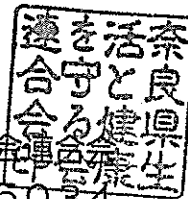 奈良県生
活と健康
を守る
連合会
会連合会